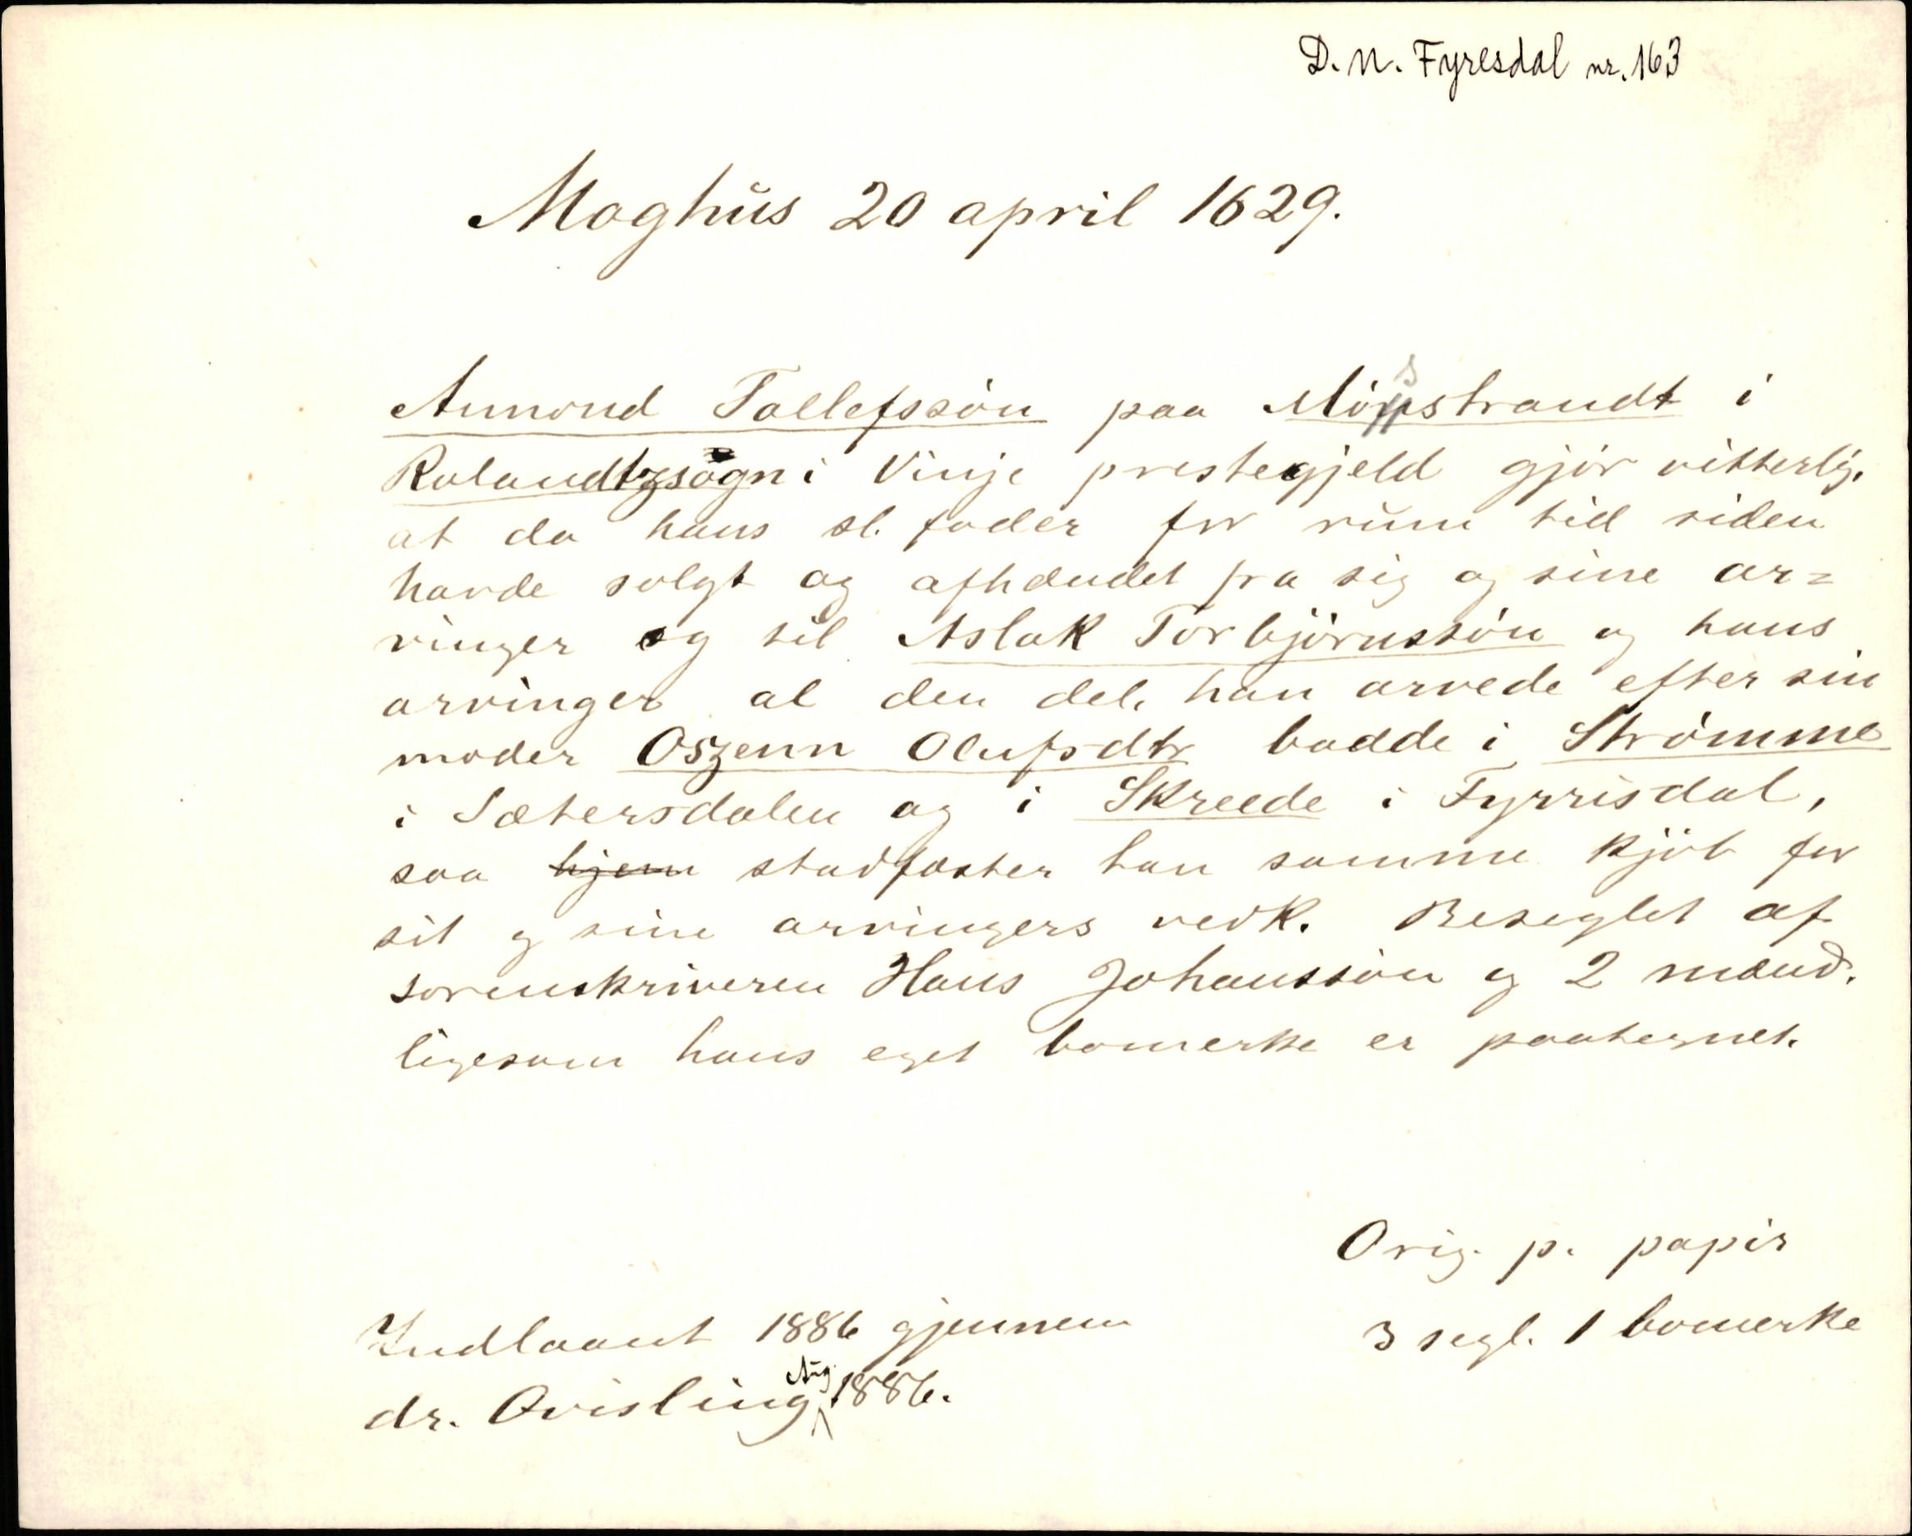 D. N. Fyresdal nr. 163
Moghus 20 april 1629.
Amund Tallefssön paa Möpstrandt i
Rolandtzsogn i Vinje prestegjeld gjör vitterlig.
at da hans sl. fader for rum tid siden
havde solgt og afhændet fra sig og sine ar=
vinger og til Aslak Torbjörnssön og hans
arvinger al den del, han arvede efter sin
moder Oszenn Olufsdtr badde i Strömme
i Sætersdalen og i Skreede i Fyrrisdal,
saa hjem stadfæster han samme kjöb for
sit og sine arvingers vedk. Beseglet af
sorenskriveren Hans Johanssön og 2 mænd.
ligesom hans eget bomerke er paategnet.
Orig. p. papir
3 segl. 1 bomerke
Indlaant 1886 gjennem
dr. Qvisling Aug. 1886.